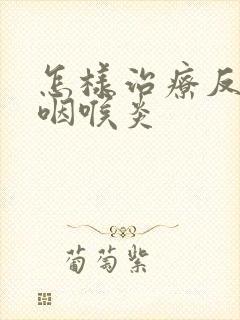 怎樣治療反
咽喉炎
葡萄紫